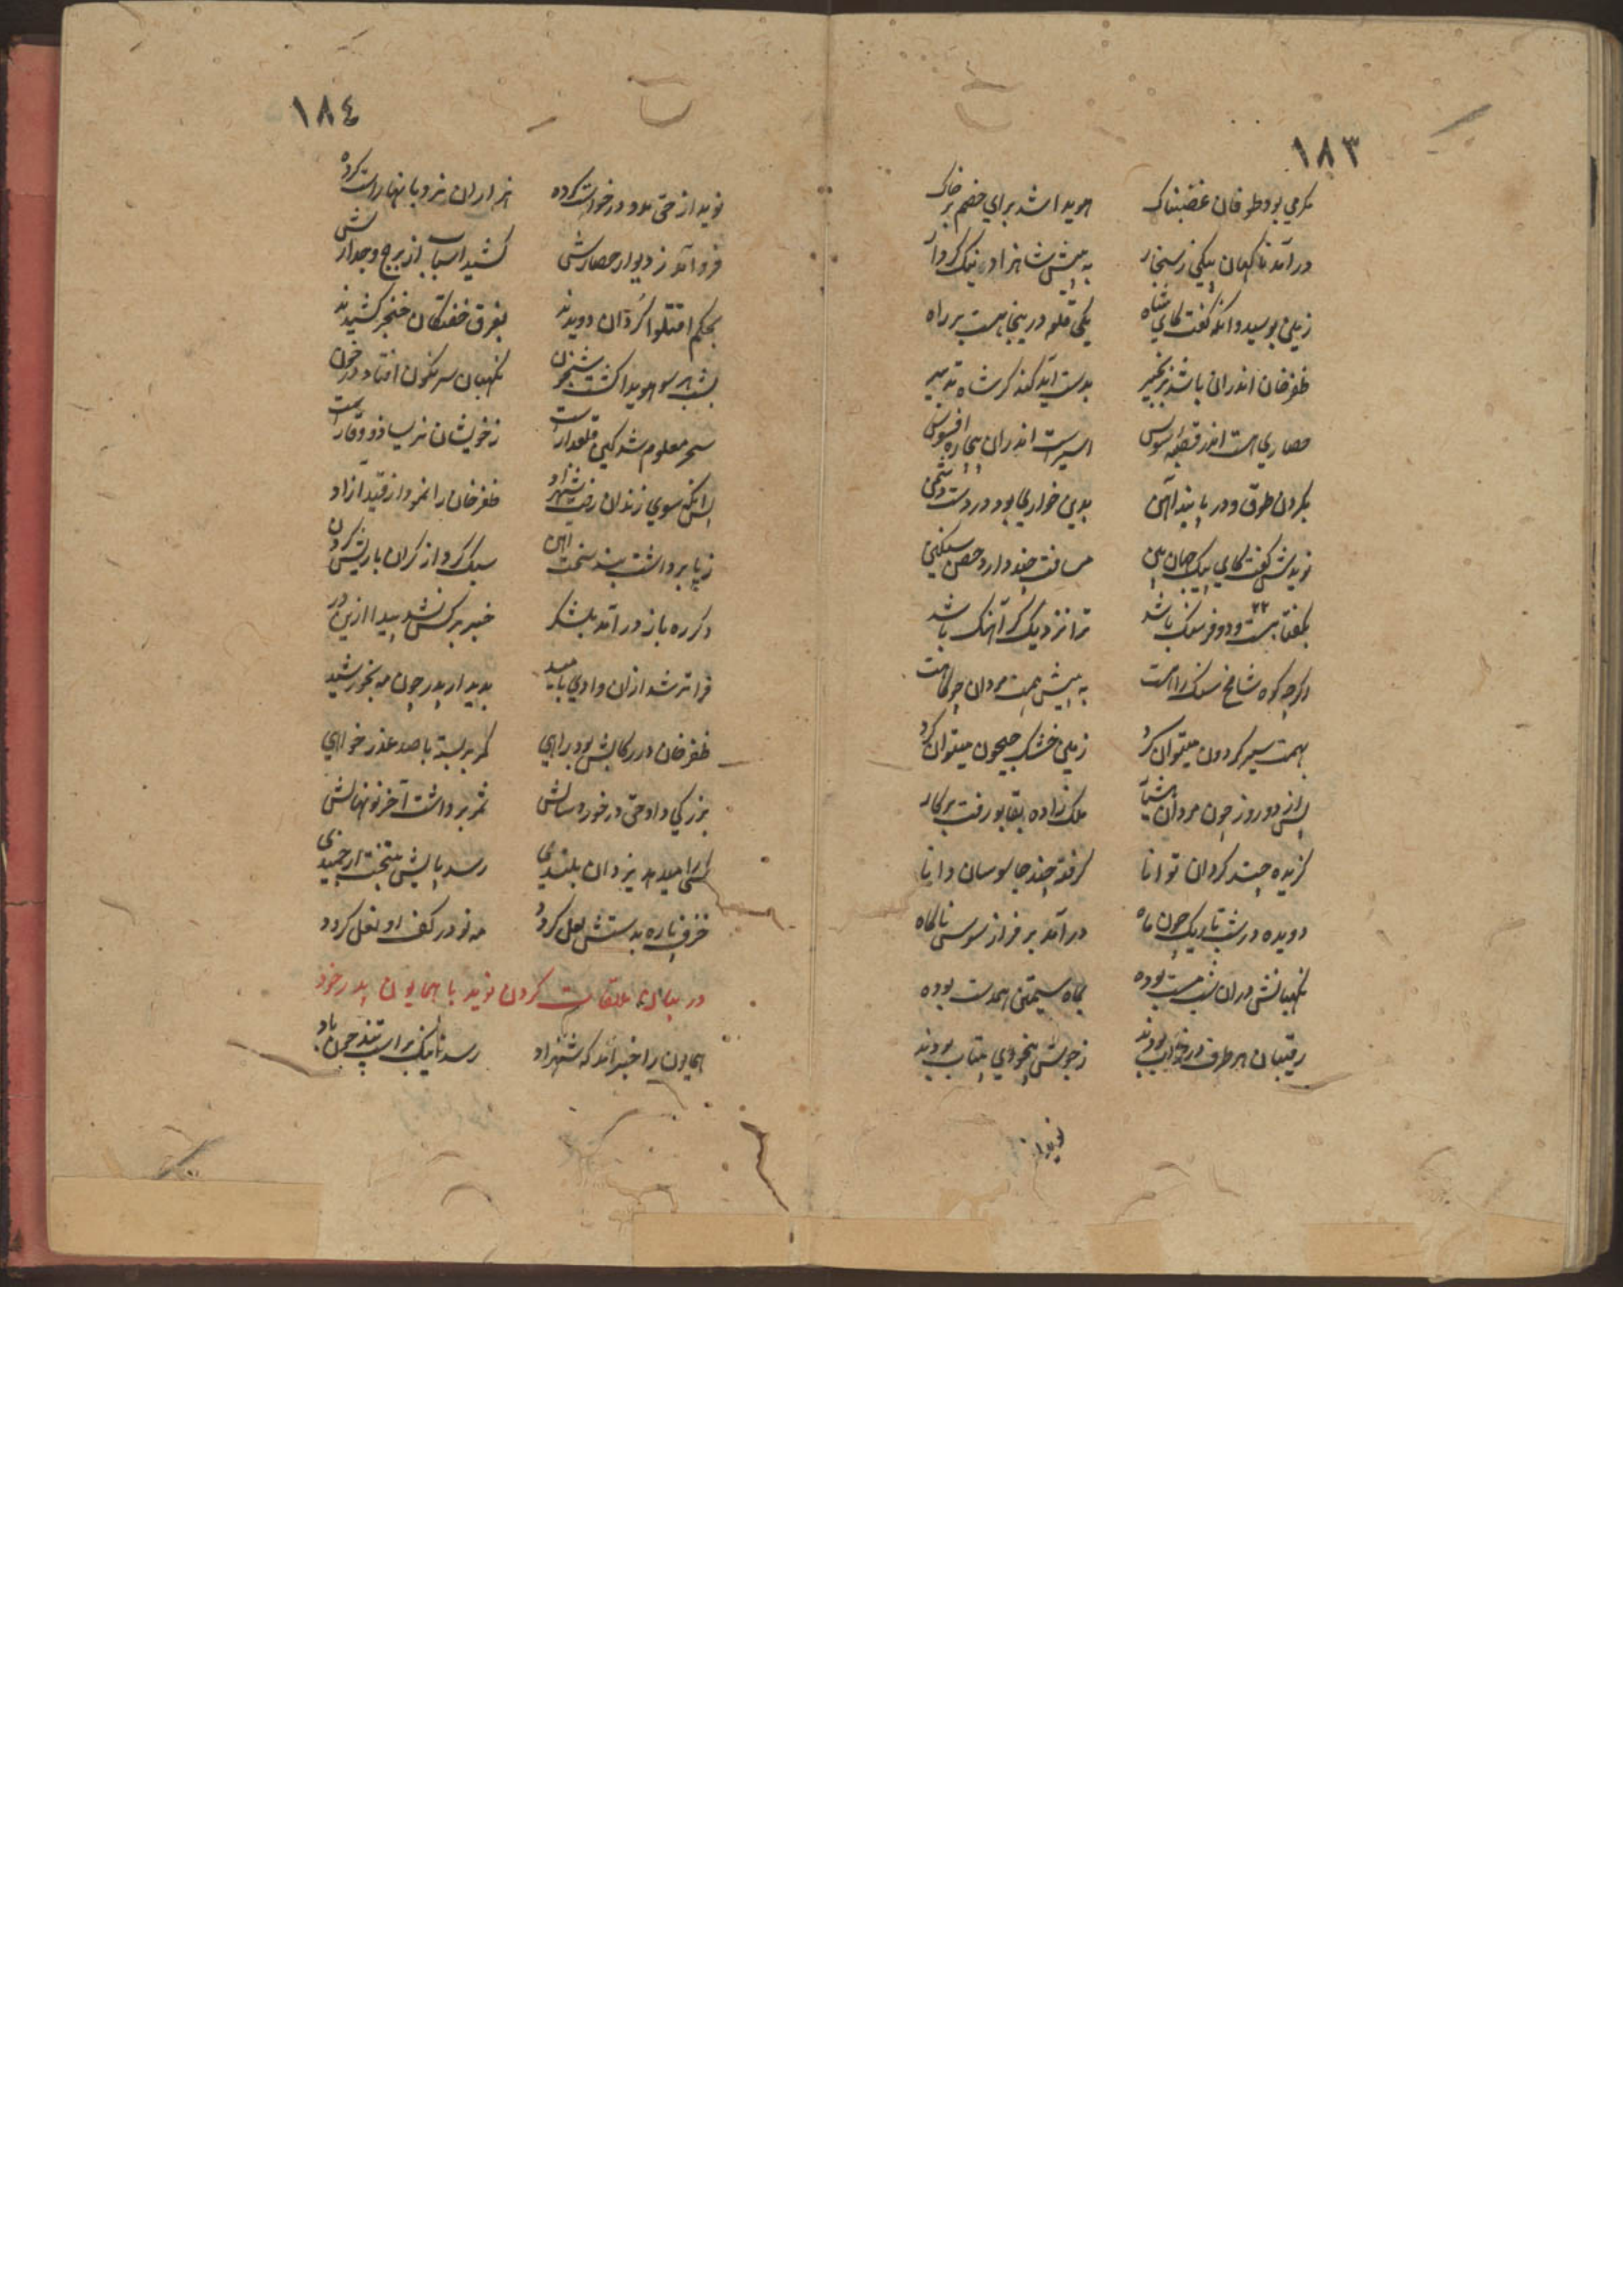 ١٨٣
بکرمی بود طوفان غضبناک هویدا شد برای خصم بر خاک
درآمد ناکهان پیکی ز سنجار به پیش شاهزاد نیک کردار
زمین بوسید وانکه گفت کای شاه یکی قلعه درینجا هست بر راه
ظفرخان اندران باشد بزنجیر بدست آید کند کر شاه تدبیر
حصاری هست اندر قصبه سوس اسیرست اندران بیچاره افسوس
بکردن طوق و در پا بند آهن بدین خواری بود در دست دشمن
نویدش گفت کای پیک جهان بین مسافت چند دارد حصن سنکین
بگفتا بیست ودو فرسنک باشد ۲۲ ترا نزدیک کر آهنک باشد
اکرچه کوه شامخ سنک راهست به پیش همت مردان چو کاهست
بهمت سیر کردون میتوان کرد زمین خشک جیحون میتوان کرد
پس از دو روز چون مردان هشیار ملک زاده بقابو رفت بر کار
کزیده چند کردان توانا کرفته چند جاسوسان دانا
دویده در شب تاریک چون ماه درآمد بر فراز سوس ناکاه
نکهبانش دران شب مست بوده بماه سیمتن همدست بوده
رقیبان هر طرف در خواب بودند ز جوش بیخودی بیتاب بودند
نوید از
١٨٤
نوید از حق مدد درخواست کرده هزاران نردبانها راست کرده
فرو آمد ز دیوار حصارش کشید اسباب از برج وجدارش
بحکم اقتلوا کردان دویدند بفرق خفتکان خنجر کشیدند
بشب هر سو هویدا کشت شبخون نکهبان سرنکون افتاد در خون
سحر معلوم شد کین قلعدارست ز خویشان نریسا ذو وقارست
پس انکه سوی زندان رفت شهزاد ظفرخان را نمود از قید آزاد
ز پا برداشت بند سخت اهن سبک کرد از کران باریش کردن
دکر ره باز درآمد بلشکر خبر بر کس نشد پیدا ازین در
فراتر شد ازان وادی بامید بدیدار پدر چون مه بخورشید
ظفرخان در رکابش بود براهی کمر بربسته با صد عذر خواهی
بزرکی داد حق در خورد سالش ثمر برداشت آخر نونهالش
کسی را میدهد یزدان بلندی رسد پایش بتخت ارجمندی
خزف پاره بدستش لعل کردد مه نو در کف او نعل کردد
در بیان ملاقات کردن نوید با همایون پدر خود
همایون را خبر آمد که شهزاد رسد نانیک بر اسپ تند چون باد